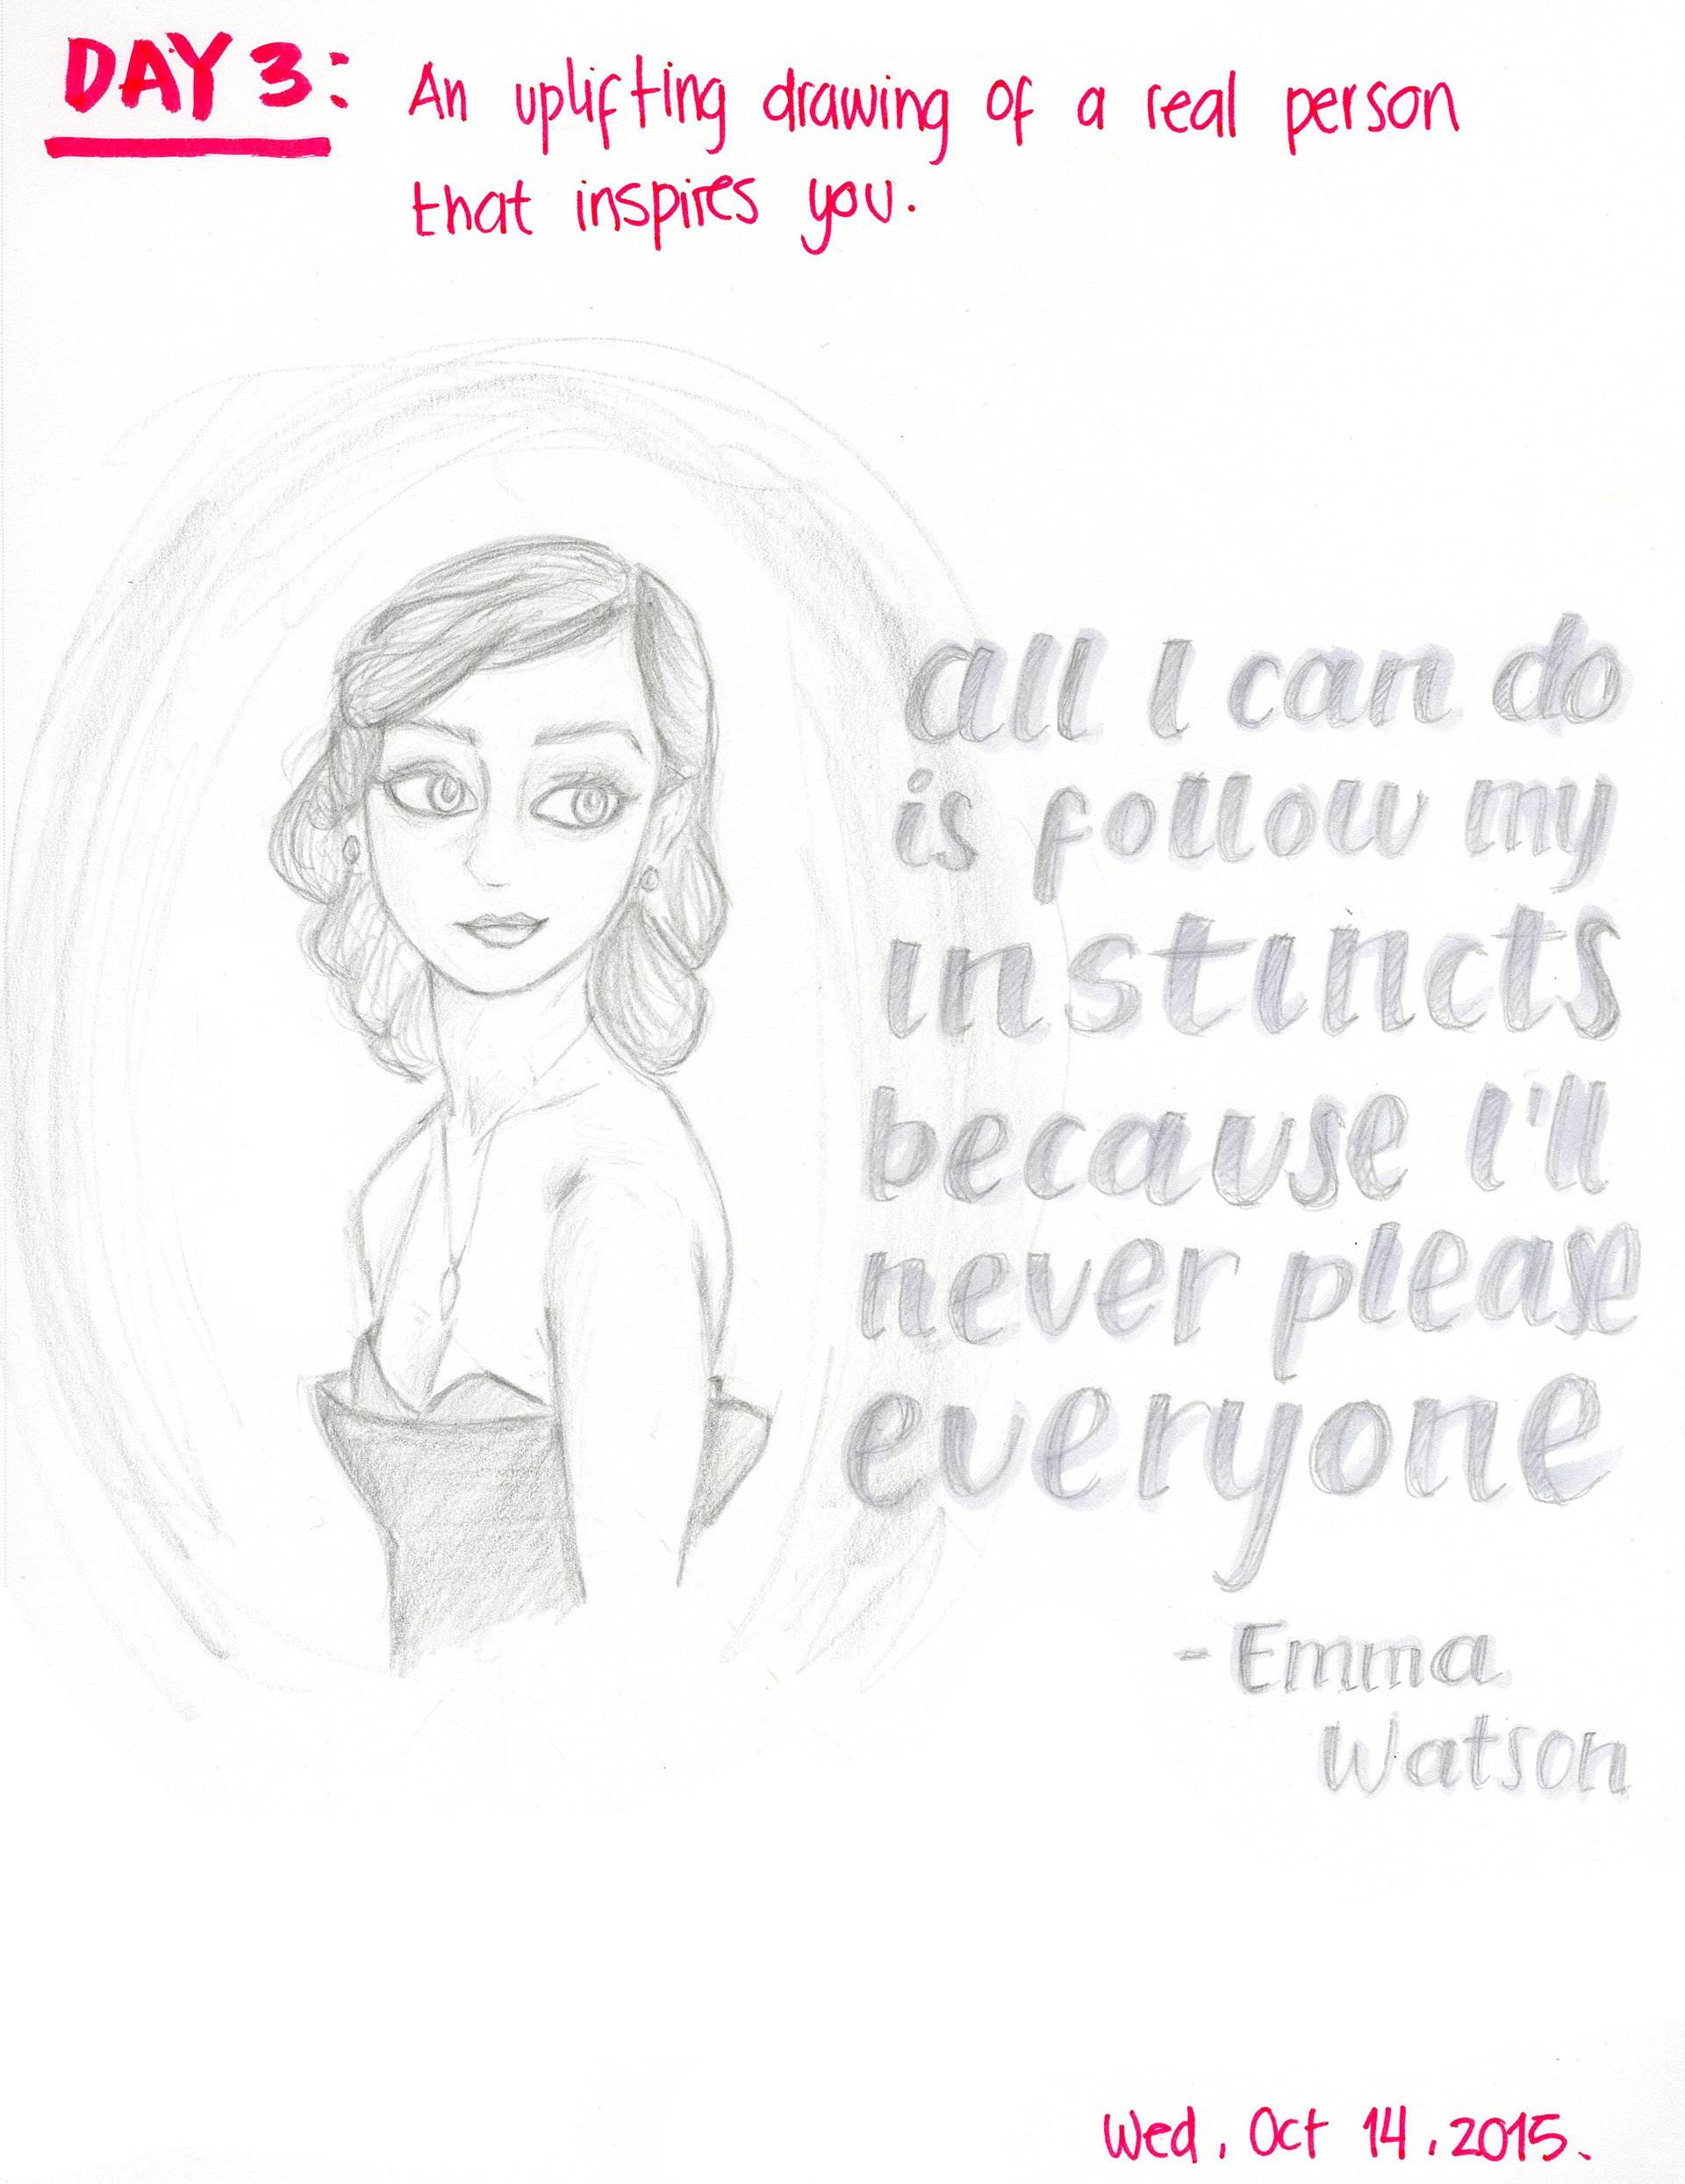 DAY 3: An uplifting drawing of a real person
that inspires you.
all I can do
is follow my
instincts
because I'll
never please
everyone
- Emma
Watson
Wed, Oct 14, 2015.